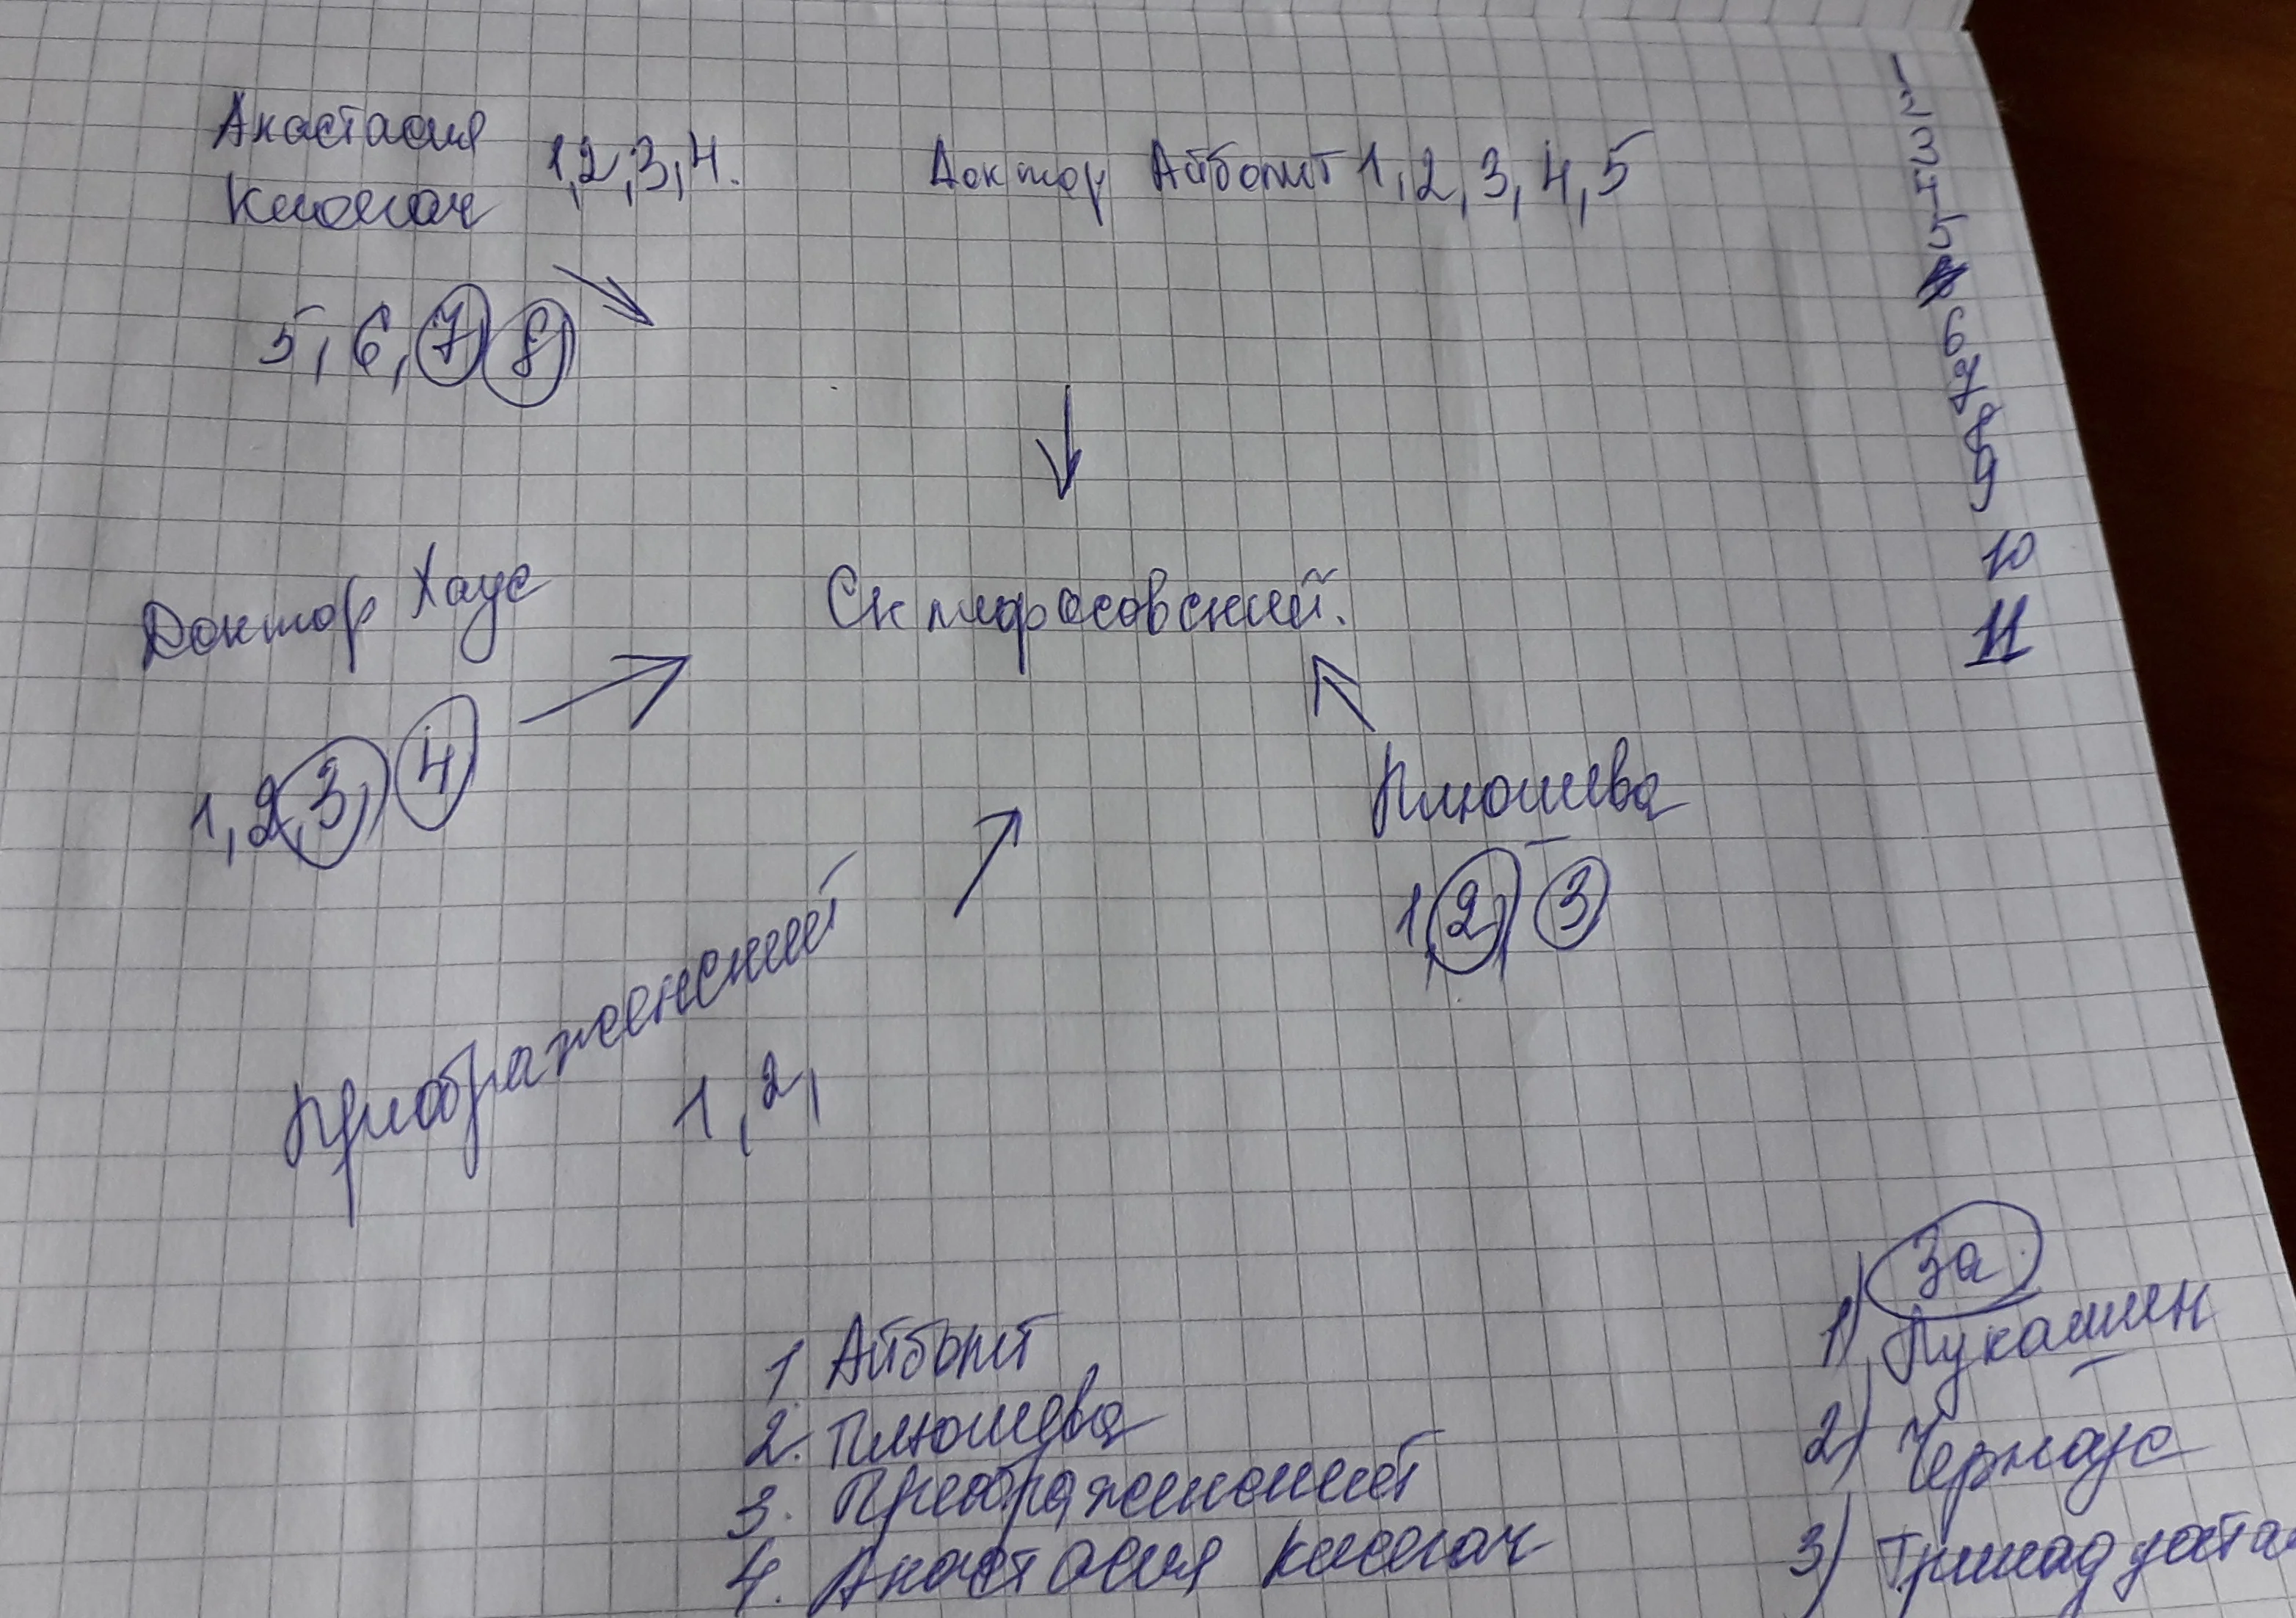 Анастасия
Кисегач 1,2,3,4.
5, 6, 7, 8
Доктор Айболит 1, 2, 3, 4, 5
1
2
3
4
5
6
7
8
9
10
11
Доктор Хаус
1, 2, 3, 4
Склифосовский.
Плюшева
1, 2, 3
Преображенский
1, 2,
1 Айболит
2. Плюшева
3. Преображенский
4. Анастасия Кисегач
За
1) Лукашин
2) Черноус
3)